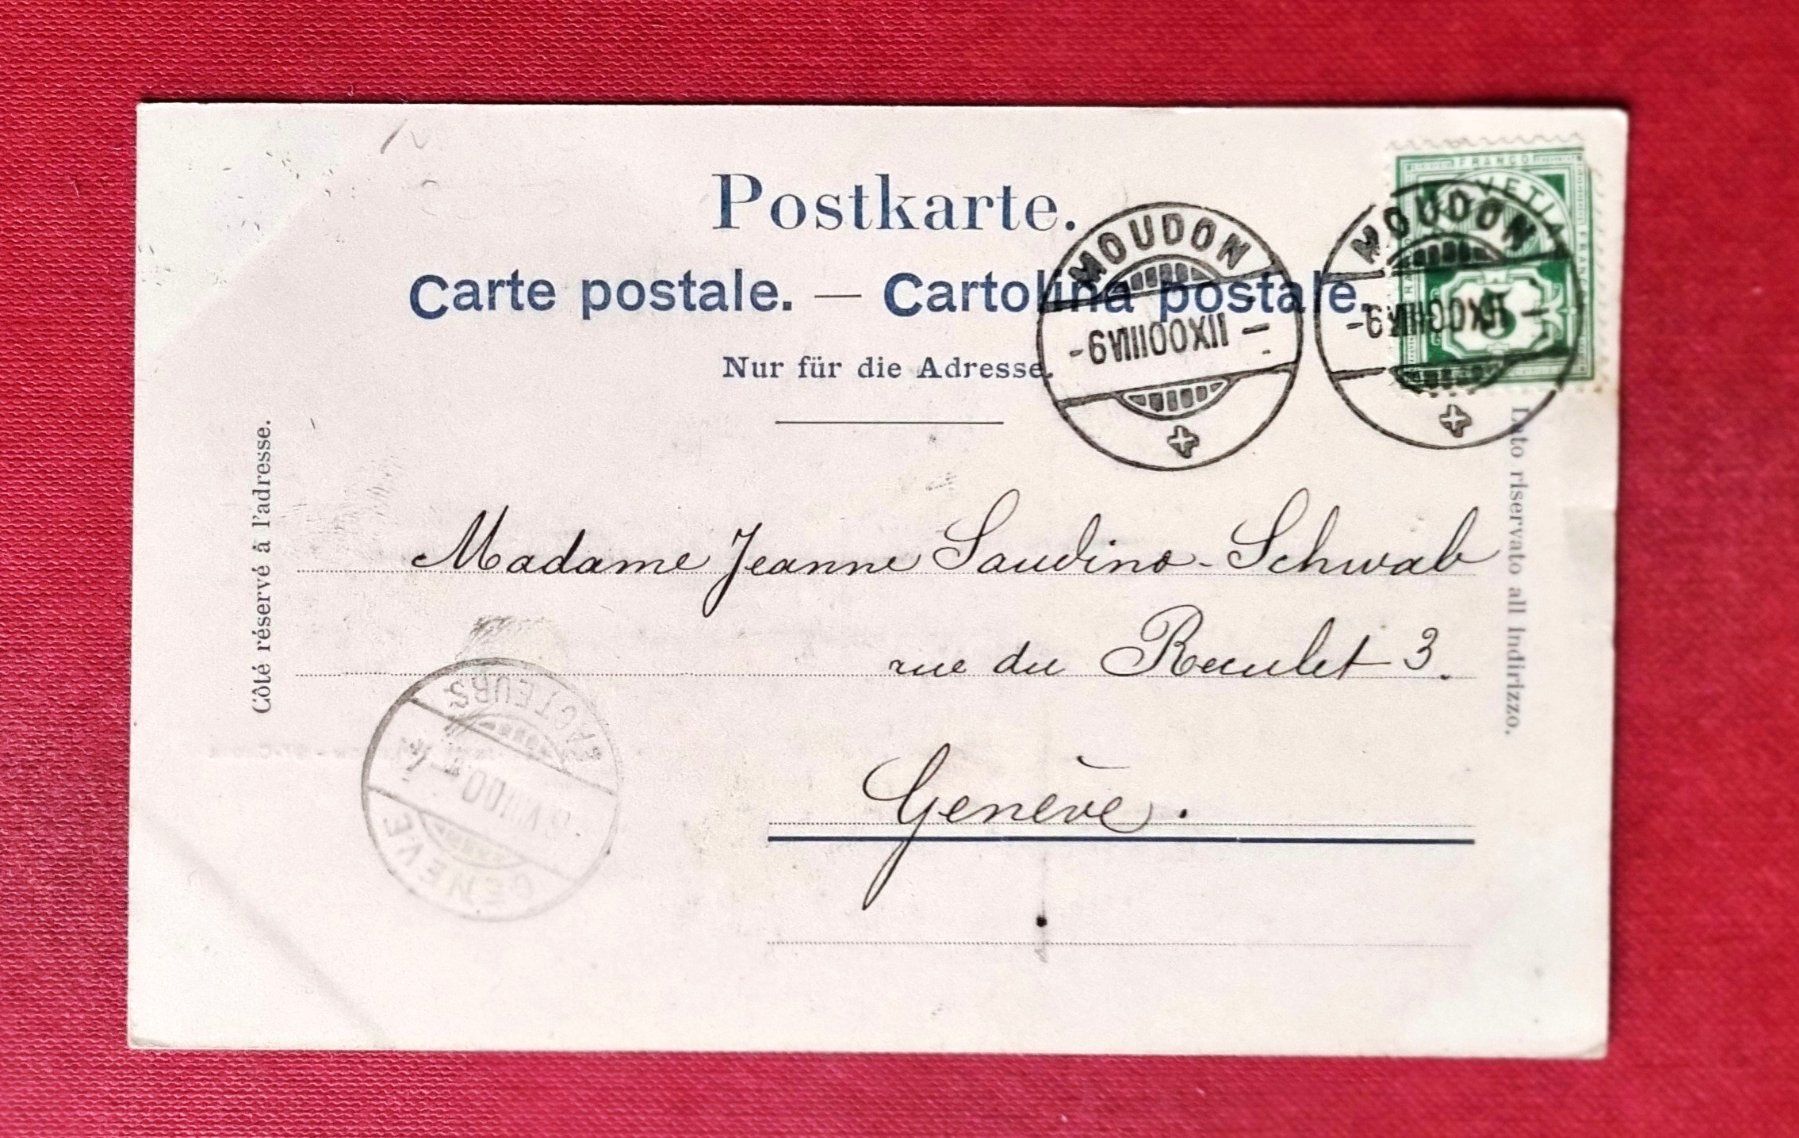 Postkarte.
Carte postale. — Cartolina postale.
Nur für die Adresse.
FRANCO
MOUDON
-9 VIII 00 XII-
MOUDON
-9 VIII 00 XII-
5
Côté réservé à l'adresse.
Lato riservato all Indirizzo.
Madame Jeanne Saudino-Schwab
rue du Reculet 3.
Genève.
FACTEURS
VIII 00
GENEVE